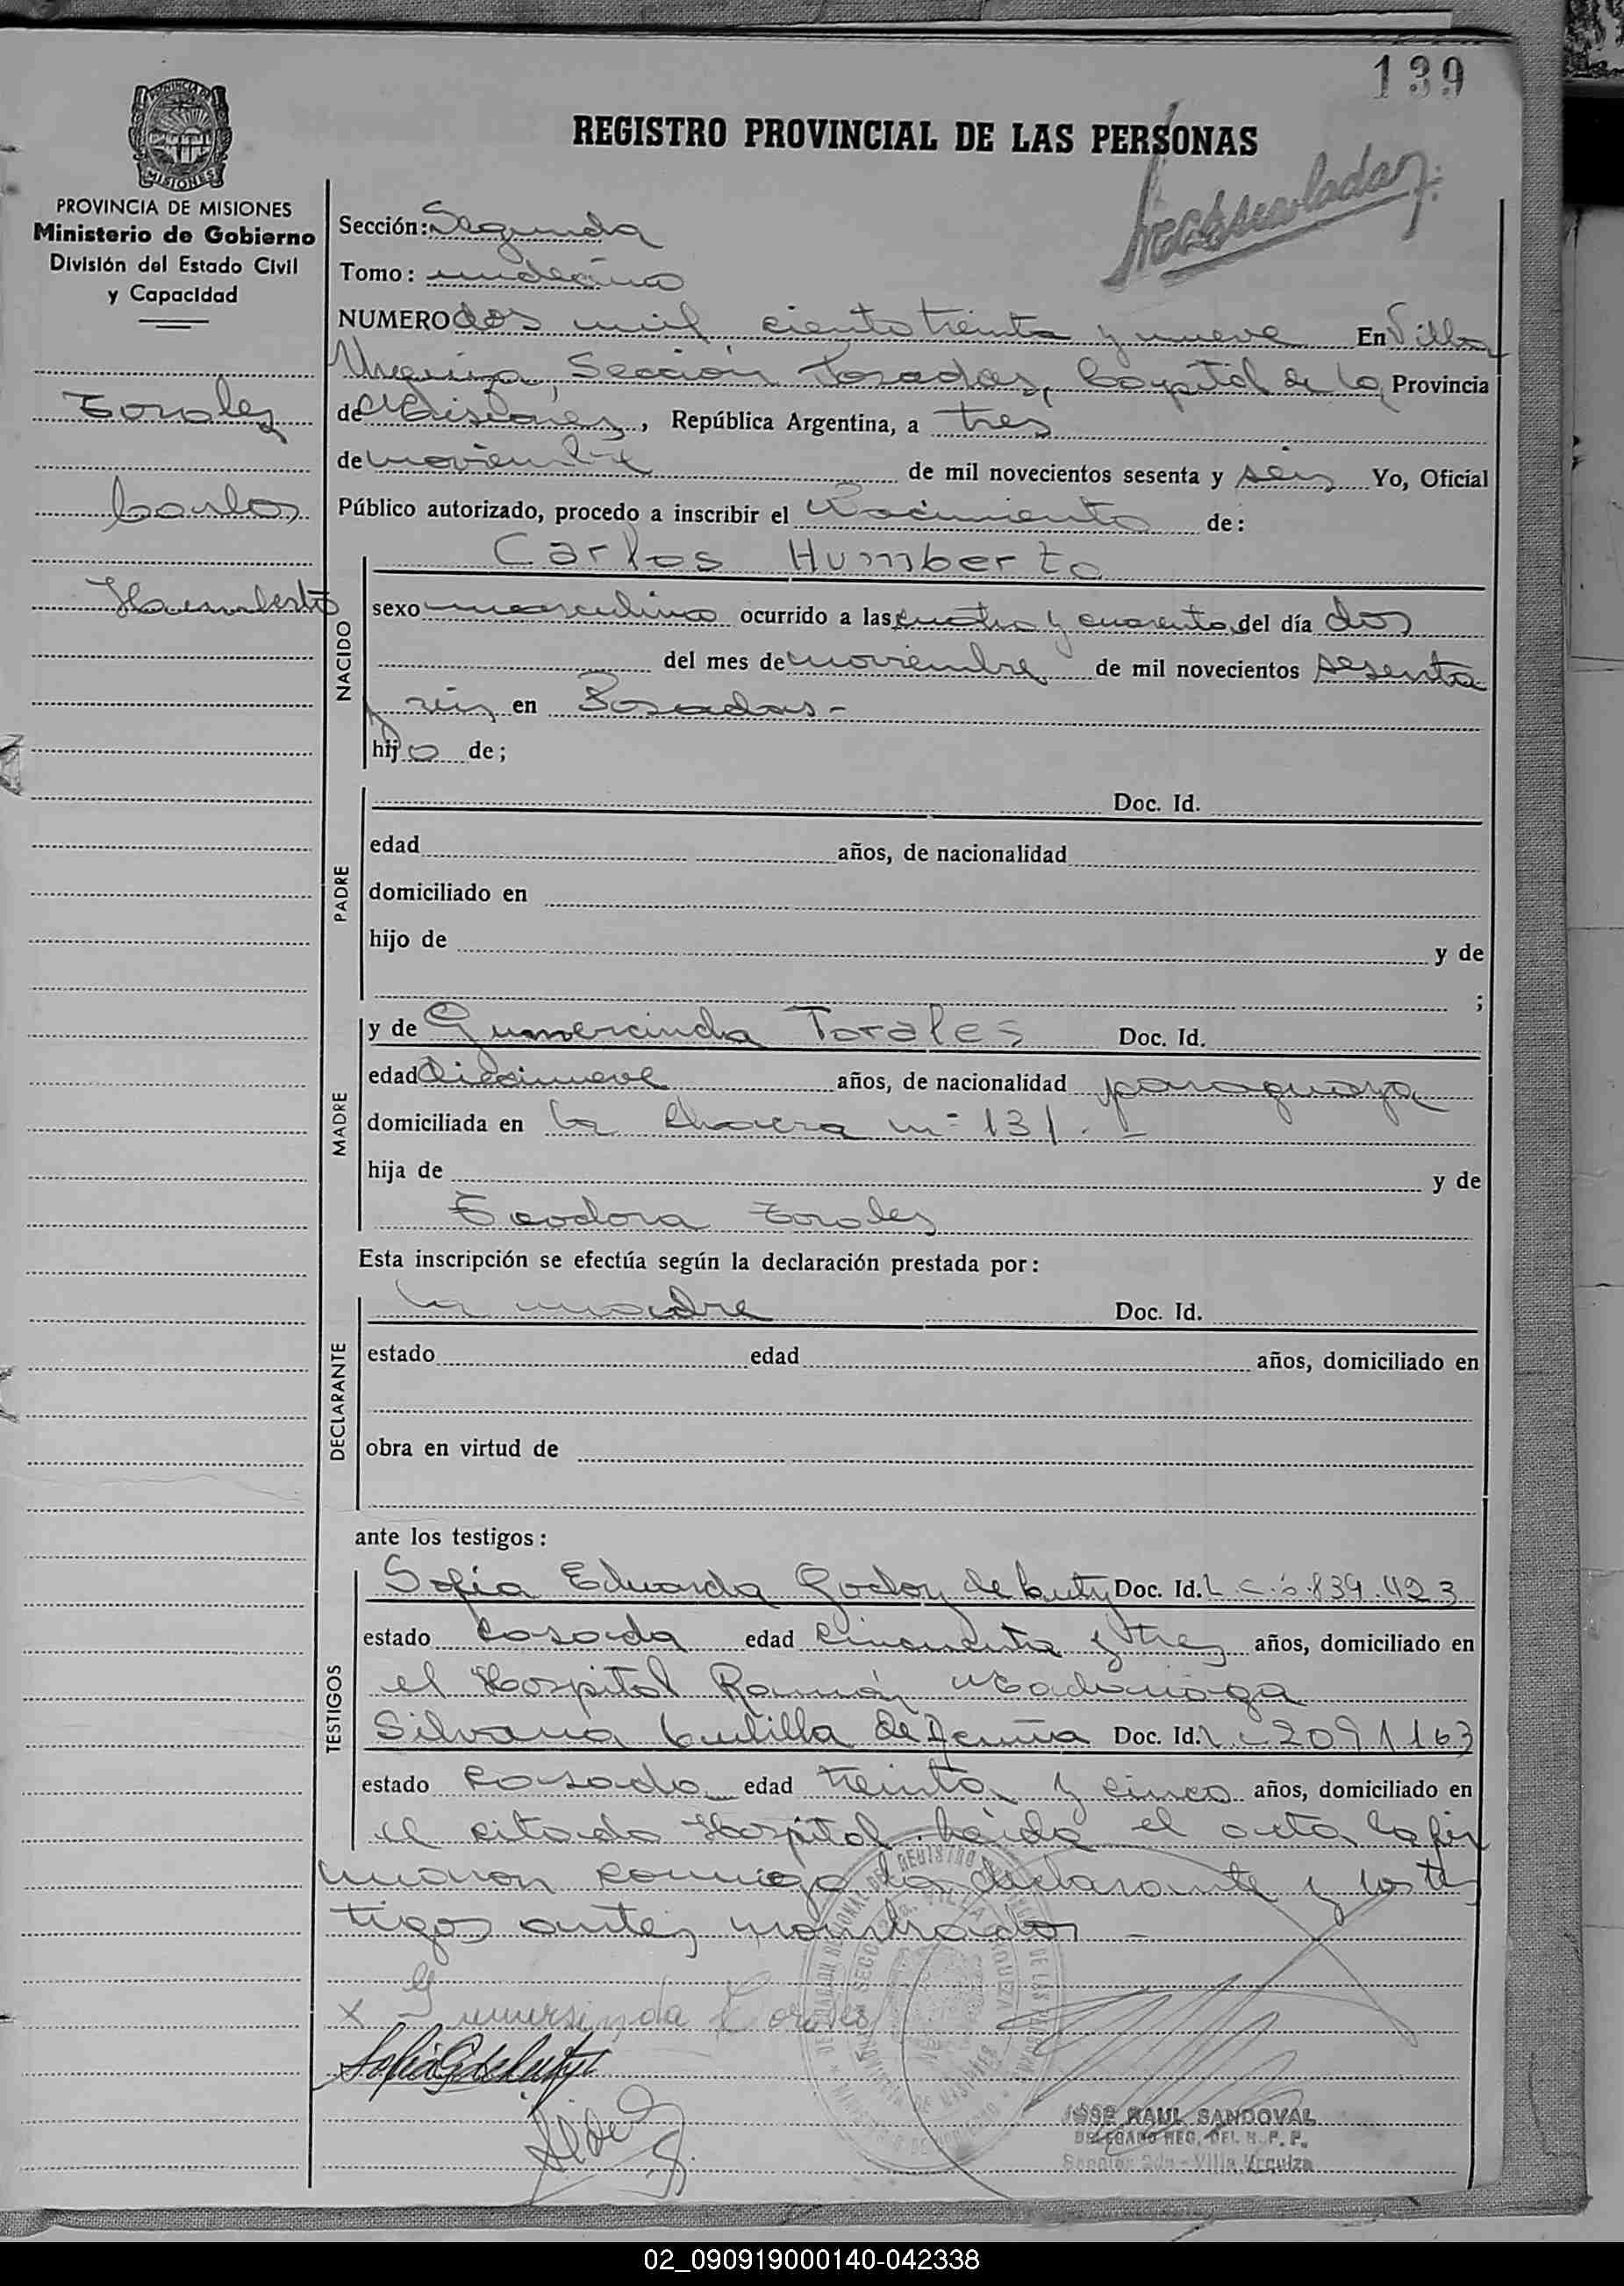 139
REGISTRO PROVINCIAL DE LAS PERSONAS
PROVINCIA DE
MISIONES
PROVINCIA DE MISIONES
Ministerio de Gobierno
División del Estado Civil
y Capacidad
Torales
Carlos
Humberto
Sección: Segunda
Tomo: undecimo
NUMERO dos mil ciento treinta y nueve En Villa
Urquiza, Sección Posadas, Capital de la Provincia
de Misiones, República Argentina, a tres
de noviembre de mil novecientos sesenta y seis Yo, Oficial
Público autorizado, procedo a inscribir el Nacimiento de:
NACIDO
Carlos Humberto
sexo masculino ocurrido a las cuatro y cuarenta del día dos
del mes de noviembre de mil novecientos sesenta
y seis en Posadas-
hijo de;
PADRE
Doc. Id.
edad años, de nacionalidad
domiciliado en
hijo de y de
;
MADRE
y de Gumercinda Torales Doc. Id.
edad diecinueve años, de nacionalidad paraguaya
domiciliada en la chacra nº 131.-
hija de y de
Teodora Torales
Esta inscripción se efectúa según la declaración prestada por:
DECLARANTE
la madre Doc. Id.
estado edad años, domiciliado en
obra en virtud de
ante los testigos:
TESTIGOS
Sofia Eduarda Godoy de Doc. Id. L.C. 6.839.423
estado casada edad cincuenta y tres años, domiciliado en
el Hospital Ramón Madariaga
Silvana de Doc. Id. L.C. 2091163
estado casada edad treinta y cinco años, domiciliado en
el citado Hospital. Leida el acta la fir
maron conmigo la declarante y los tes
tigos antes nombrados -
x Gumersinda Torales
JOSE RAUL SANDOVAL
DELEGADO REG. DEL R. P. P.
Sección 2da - Villa Urquiza
02_090919000140-042338